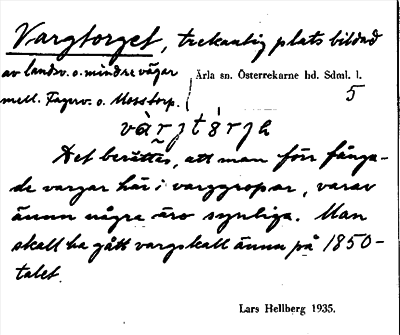 Vargtorget, trekantig plats bildad
av landsv. o. mindre vägar
mell. Fagerv. o. Mosstorp.
Ärla sn. Österrekarne hd. Sdml. l.
5
Det berättes, att man förr fånga-
de vargar här i varggropar, varav
ännu några äro synliga. Man
skall ha gått vargskall ännu på 1850-
talet.
Lars Hellberg 1935.